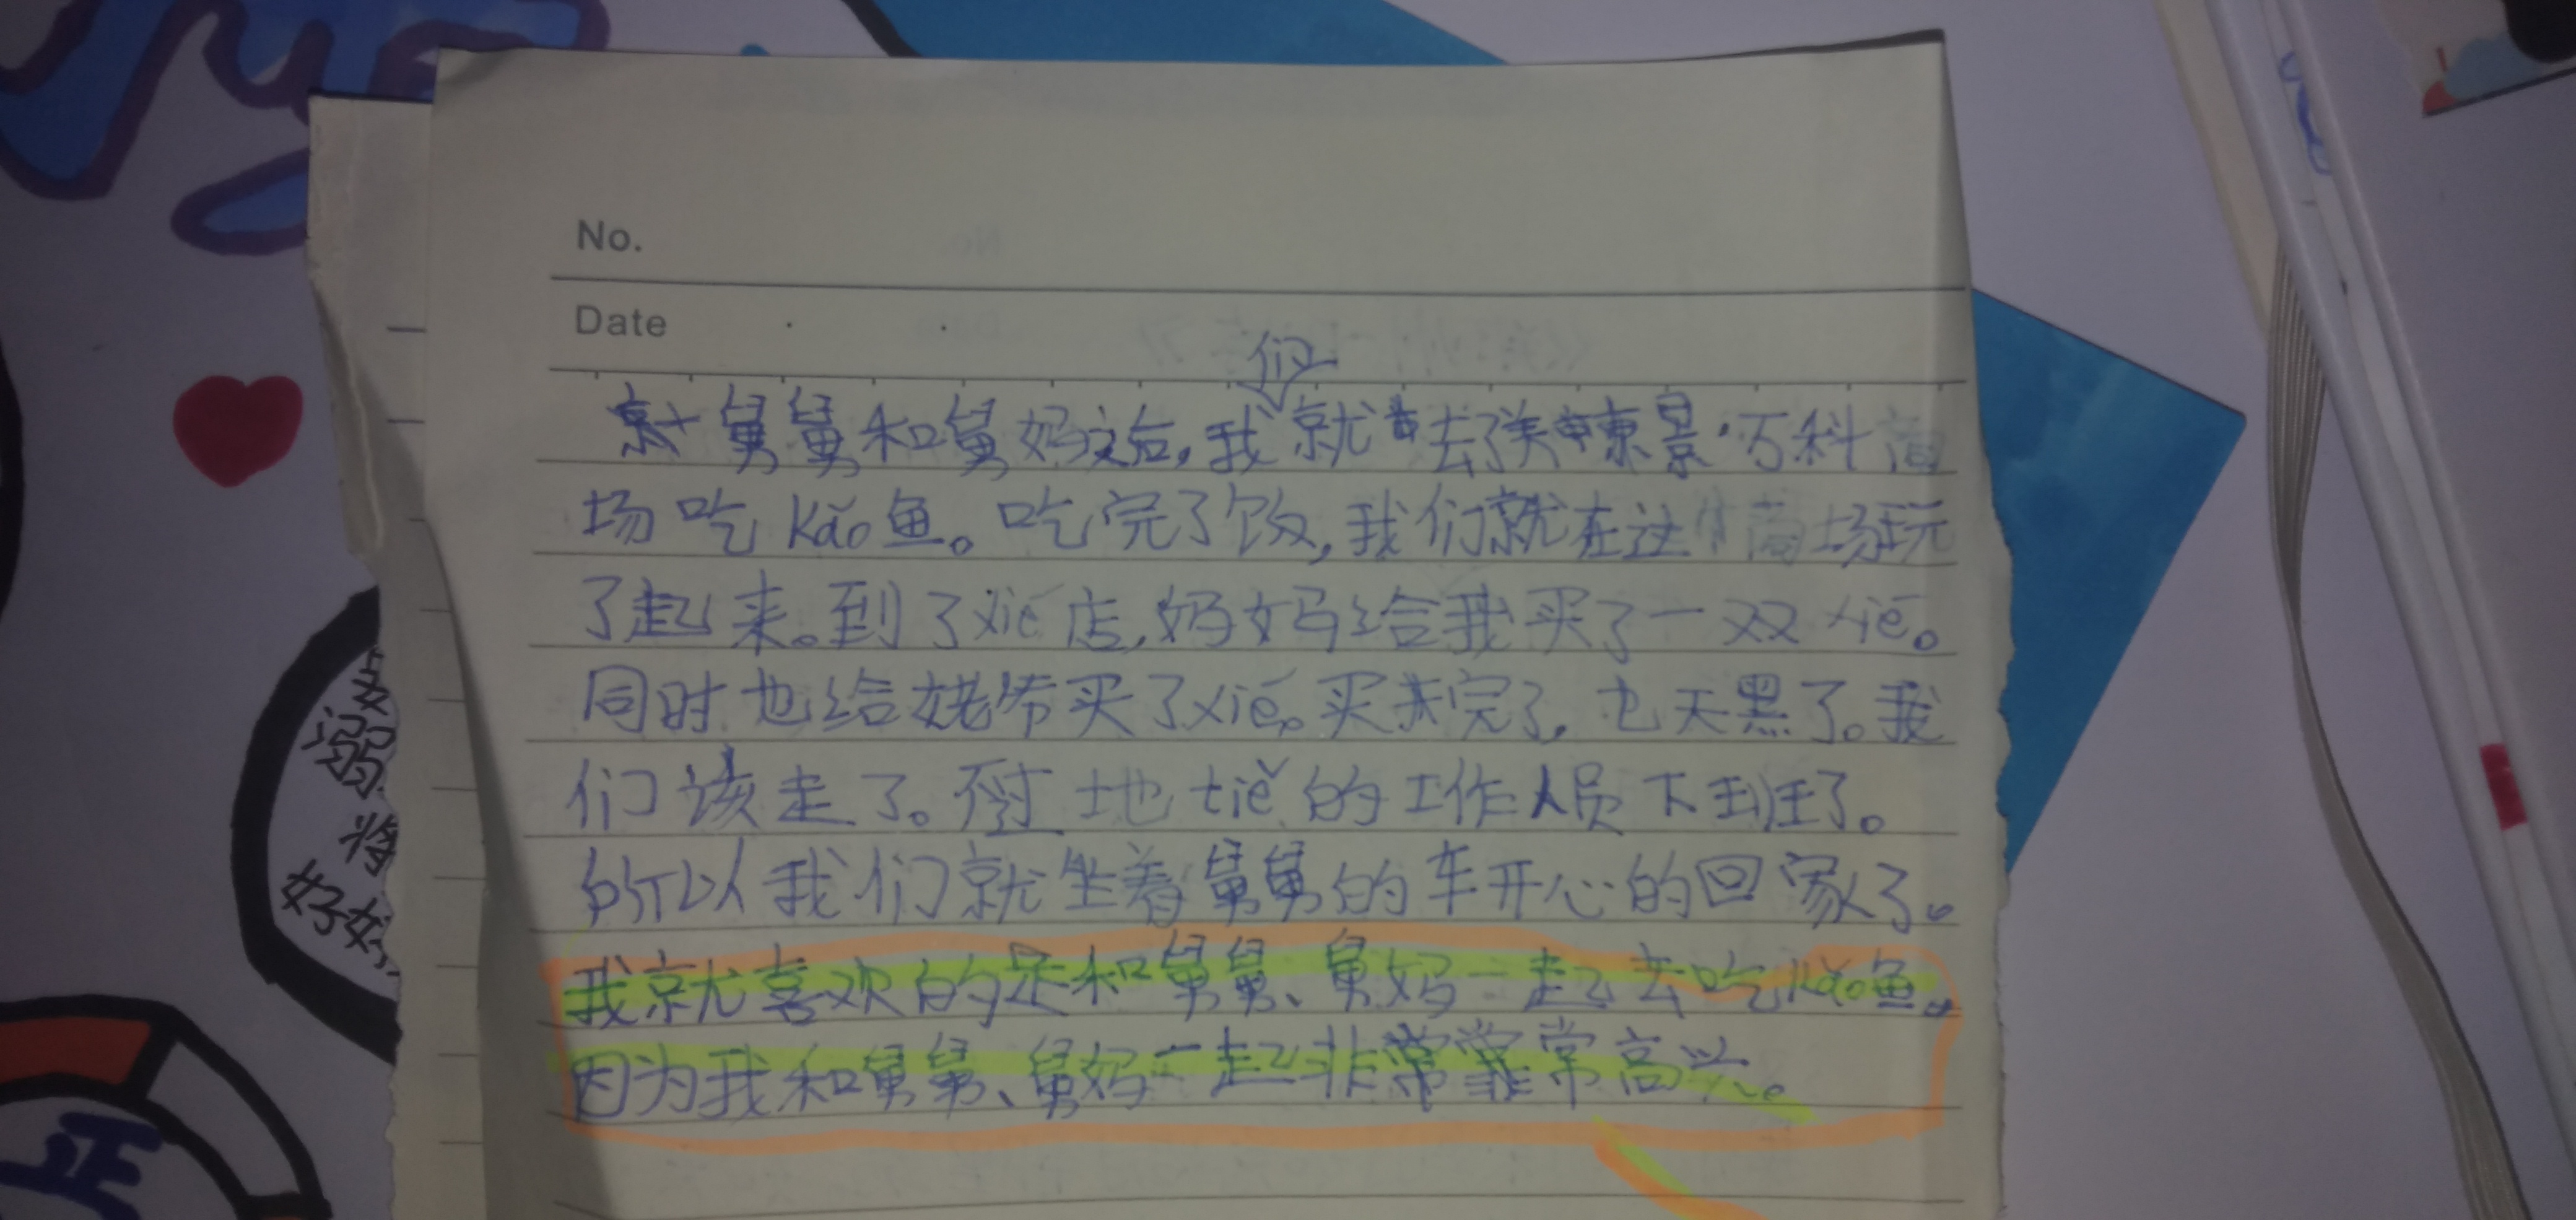 No.
Date
们
舅舅和舅妈之后，我就去了美景·万科商
场吃kǎo鱼。吃完了饭，我们就在这个商场玩
了起来。到了xié店，妈妈给我买了一双xié。
同时也给姥爷买了xié。买完了，也天黑了。我
们该走了。地tiě的工作人员下班了。
所以我们就坐着舅舅的车开心的回家了。
我就喜欢的是和舅舅、舅妈一起去吃kǎo鱼，
因为我和舅舅、舅妈一起非常常高兴。
溺
将
好好